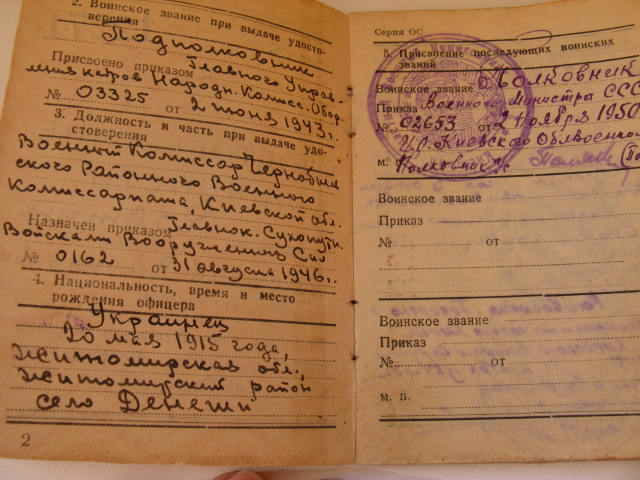 2. Воинское звание при выдаче удосто-
верения
Подполковник
Присвоено приказом Главного Управ-
ления кадров Народн. Комисс. Обор.
№ 03325 от 2 июня 1943 г.
3. Должность и часть при выдаче удо-
стоверения
Военный Комиссар Чернобыль
ского Районного Военного
Комиссариата, Киевской обл.
Назначен приказом Главнок. Сухопутн.
Войсками Вооруженных Сил
№ 0162 от 31 августа 1946 г.
4. Национальность, время и место
рождения офицера
Украинец
20 мая 1915 года,
Житомирская обл.,
Житомирский район
село Денеши
2
Серия ОС
5. Присвоение последующих воинских
званий
Воинское звание Полковник
Приказ Военного Министра ССС
№ 02653 от 2 ноября 1950
Киевского Облвоенко
м. Полковник
Воинское звание
Приказ
№ от
Воинское звание
Приказ
№ от
м. п.